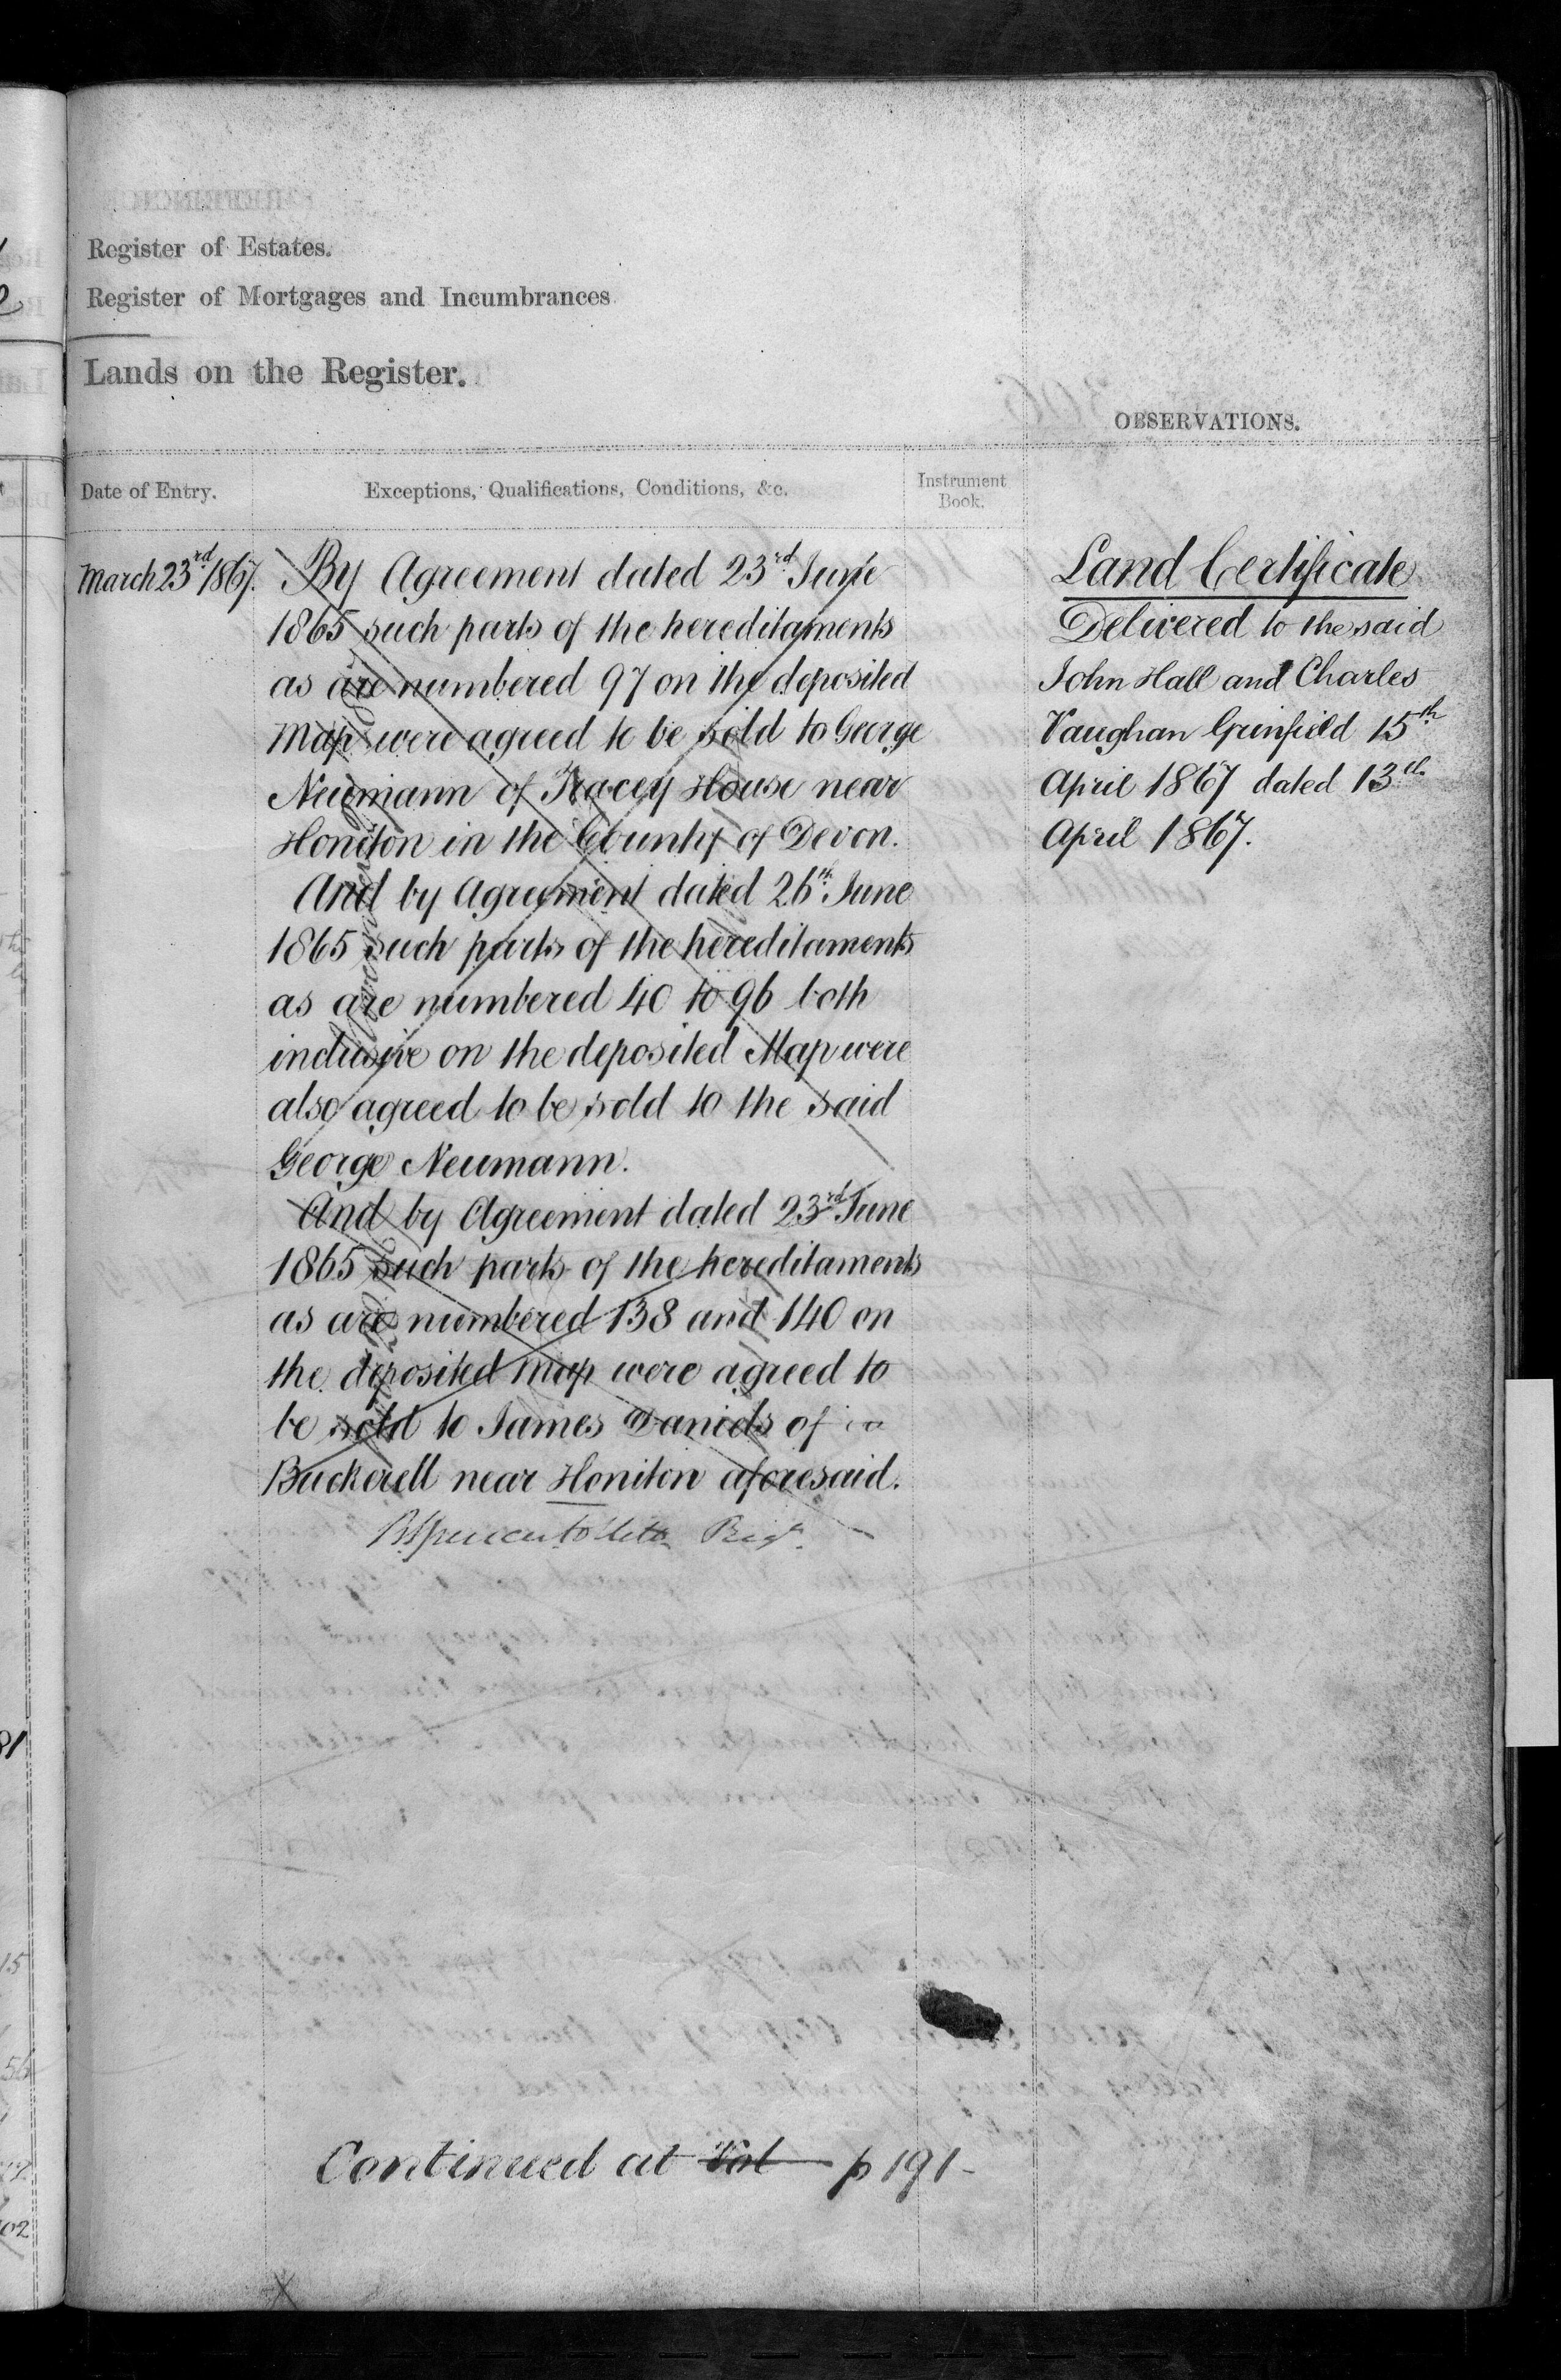 Register of Estates.
Register of Mortgages and Incumbrances
Lands on the Register.
OBSERVATIONS.
Date of Entry.
Exceptions, Qualifications, Conditions, &c.
Instrument
Book.
March 23rd 1867.
By Agreement dated 23rd June
1865 such parts of the hereditaments
as are numbered 97 on the deposited
Map were agreed to be sold to George
Neumann of Tracey House near
Honiton in the County of Devon.
And by Agreement dated 26th June
1865 such parts of the hereditaments
as are numbered 40 to 96 both
inclusive on the deposited Map were
also agreed to be sold to the said
George Neumann.
And by Agreement dated 23rd June
1865 such parts of the hereditaments
as are numbered 138 and 140 on
the deposited map were agreed to
be sold to James Daniels of
Buckerell near Honiton aforesaid.
Land Certificate
Delivered to the said
John Hall and Charles
Vaughan Grinfield 15th
April 1867 dated 13th
April 1867.
Continued at Vol p 191-